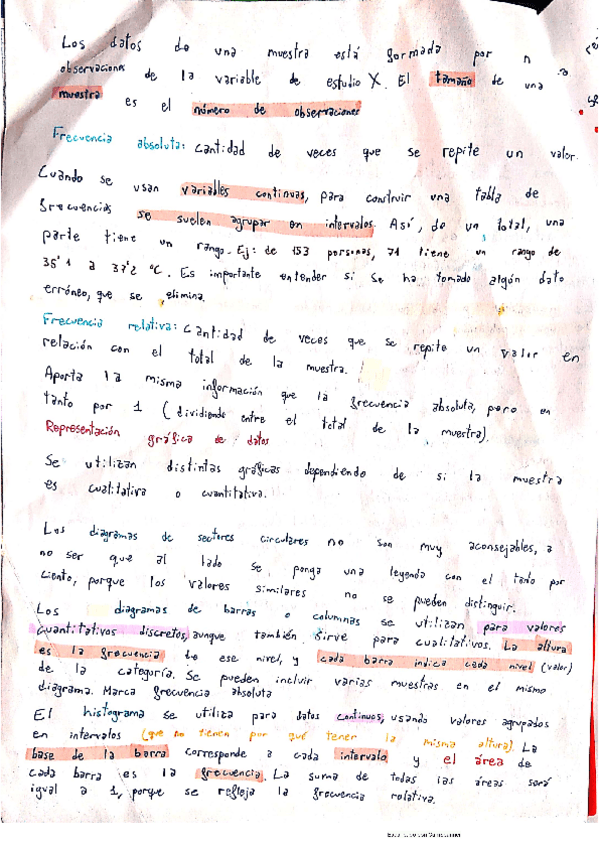 Los datos de una muestra está formada por n
observaciones de la variable de estudio X. El tamaño de una
muestra es el número de observaciones
Frecuencia absoluta: Cantidad de veces que se repite un valor.
Cuando se usan variables continuas, para construir una tabla de
frecuencias se suelen agrupar en intervalos. Así, de un total, una
parte tiene un rango. Ej: de 153 personas, 71 tiene un rango de
36'1 a 37'2 ºC. Es importante entender si se ha tomado algún dato
erróneo, que se elimina.
Frecuencia relativa: Cantidad de veces que se repite un valor en
relación con el total de la muestra.
Aporta la misma información que la frecuencia absoluta, pero en
tanto por 1 (dividiendo entre el total de la muestra).
Representación gráfica de datos
Se utilizan distintas gráficas dependiendo de si la muestra
es cualitativa o cuantitativa.
Los diagramas de sectores circulares no son muy aconsejables, a
no ser que al lado se ponga una leyenda con el tanto por
ciento, porque los valores similares no se pueden distinguir.
Los diagramas de barras o columnas se utilizan para valores
cuantitativos discretos, aunque también sirve para cualitativos. La altura
es la frecuencia de ese nivel, y cada barra indica cada nivel (valor)
de la categoría. Se pueden incluir varias muestras en el mismo
diagrama. Marca frecuencia absoluta
El histograma se utiliza para datos continuos, usando valores agrupados
en intervalos (que no tienen por qué tener la misma altura). La
base de la barra corresponde a cada intervalo y el área de
cada barra es la frecuencia. La suma de todas las áreas será
igual a 1, porque se refleja la frecuencia relativa.